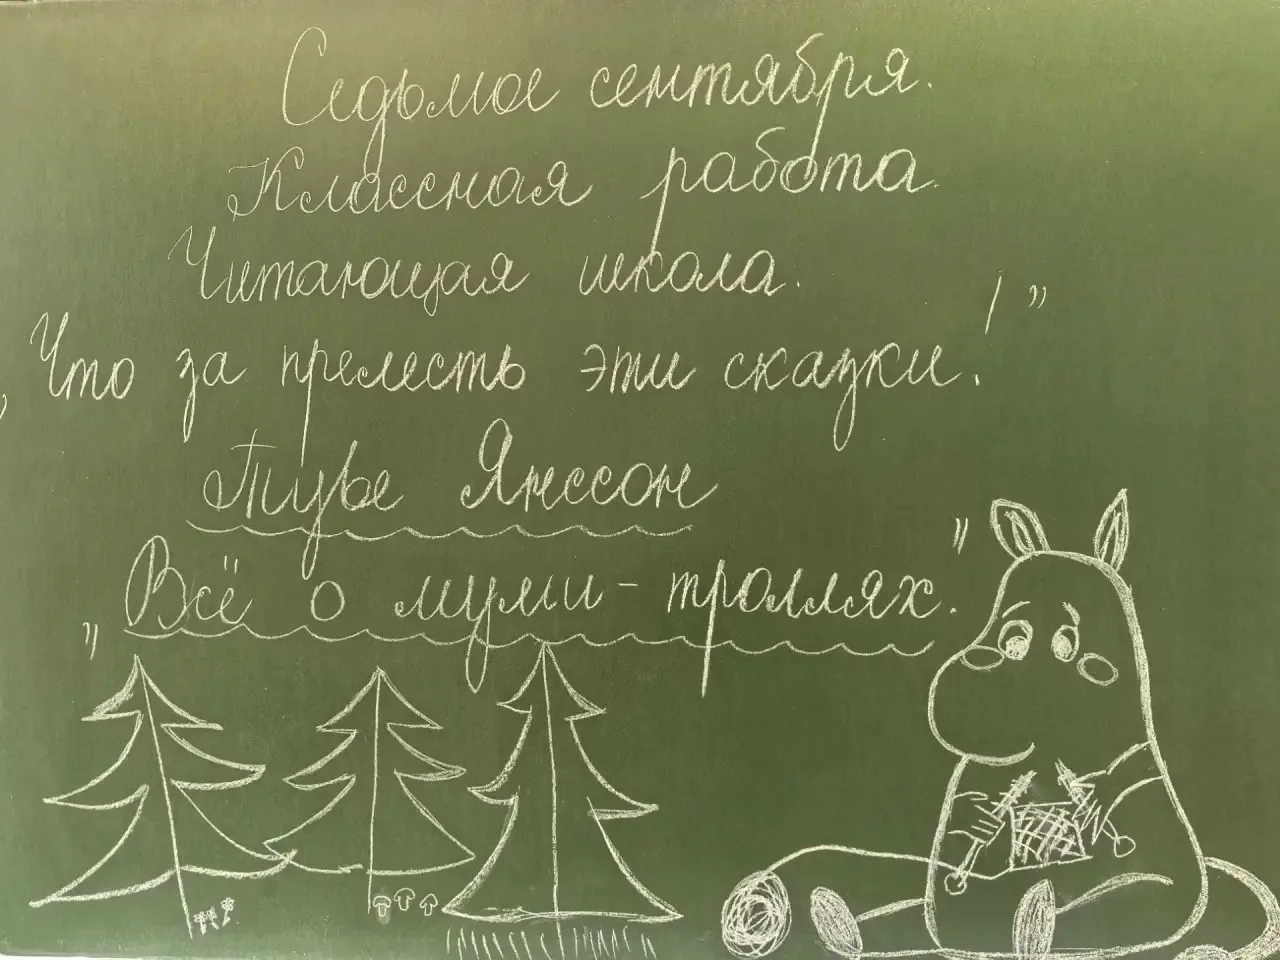 Седьмое сентября.
Классная работа.
Читающая школа.
„Что за прелесть эти сказки!”
Туве Янссон
„Всё о муми-троллях."